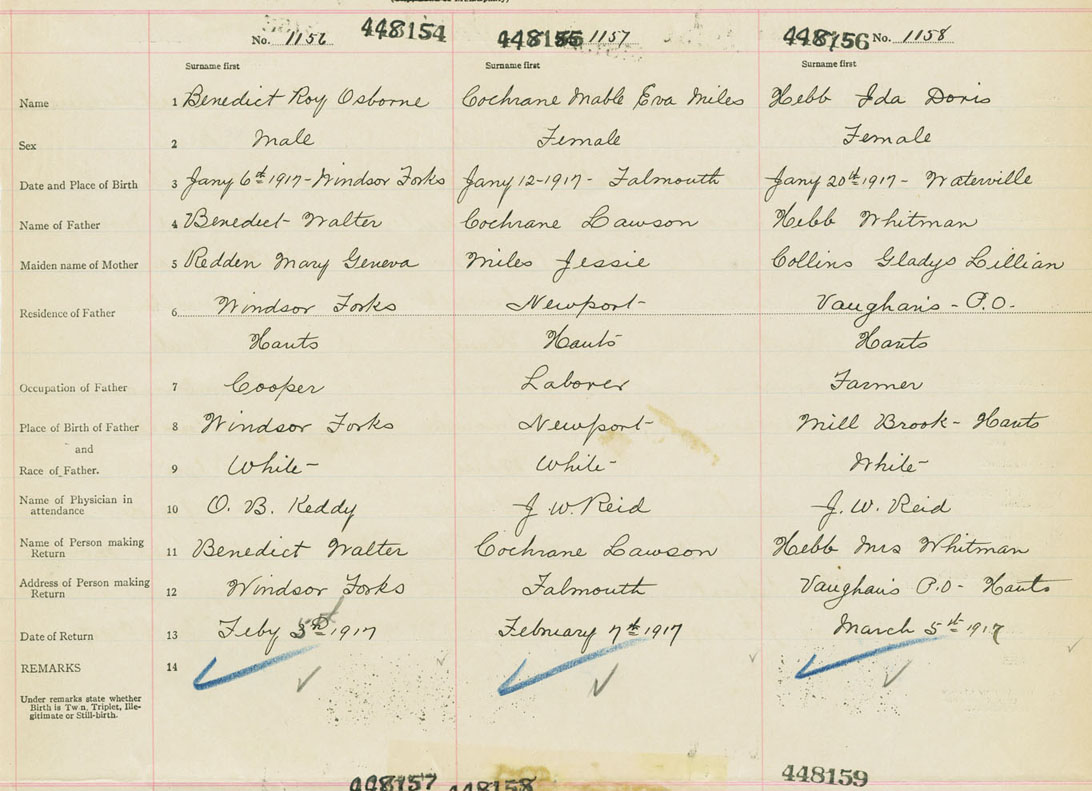 No. 1156 448154 448155 1157 448156 No. 1158
Surname first Surname first Surname first
Name 1 Benedict Roy Osborne Cochrane Mable Eva Miles Hebb Ida Doris
Sex 2 Male Female Female
Date and Place of Birth 3 Jany 6th 1917 - Windsor Forks Jany 12 - 1917 - Falmouth Jany 20th 1917 - Waterville
Name of Father 4 Benedict Walter Cochrane Lawson Hebb Whitman
Maiden name of Mother 5 Redden Mary Geneva Miles Jessie Collins Gladys Lillian
Residence of Father 6 Windsor Forks Newport Vaughan's - P.O.
Hants Hants Hants
Occupation of Father 7 Cooper Laborer Farmer
Place of Birth of Father 8 Windsor Forks Newport Mill Brook - Hants
and
Race of Father. 9 White White White
Name of Physician in attendance 10 O. B. Keddy J. W. Reid J. W. Reid
Name of Person making Return 11 Benedict Walter Cochrane Lawson Hebb Mrs Whitman
Address of Person making Return 12 Windsor Forks Falmouth Vaughan's P.O - Hants
Date of Return 13 Feby 1917 February 7th 1917 March 5th 1917
REMARKS 14
Under remarks state whether
Birth is Twin, Triplet, Ille-
gitimate or Still-birth.
448157 448158 448159